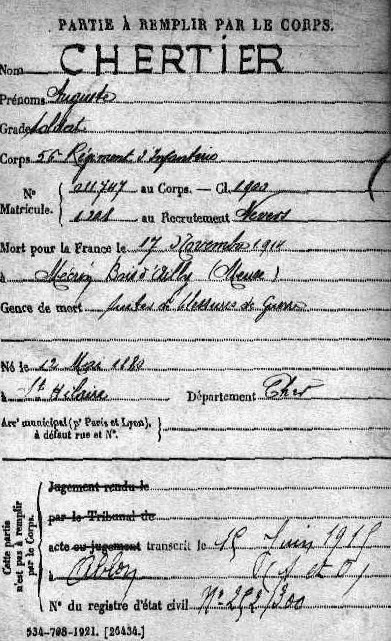 PARTIE À REMPLIR PAR LE CORPS.
Nom CHERTIER
Prénoms Auguste
Grade Soldat
Corps 56 Régiment d'Infanterie
N° Matricule. { 011747 au Corps. — Cl. 1900
1201 au Recrutement Nevers
Mort pour la France le 17 Novembre 1914
à Mécrin Bois d'Ailly (Meuse)
Gence de mort suites de blessures de Guerre
Né le 12 Mai 1880
à St Hilaire Département Cher
Arrt municipal (pr Paris et Lyon), à défaut rue et N°. {
Cette partie n'est pas à remplir par le Corps. {
Jugement rendu le
par le Tribunal de
acte ou jugement transcrit le 15 Juin 1915
à Ablon (S et O)
N° du registre d'état civil N° 252/300
534-708-1921. [26434.]